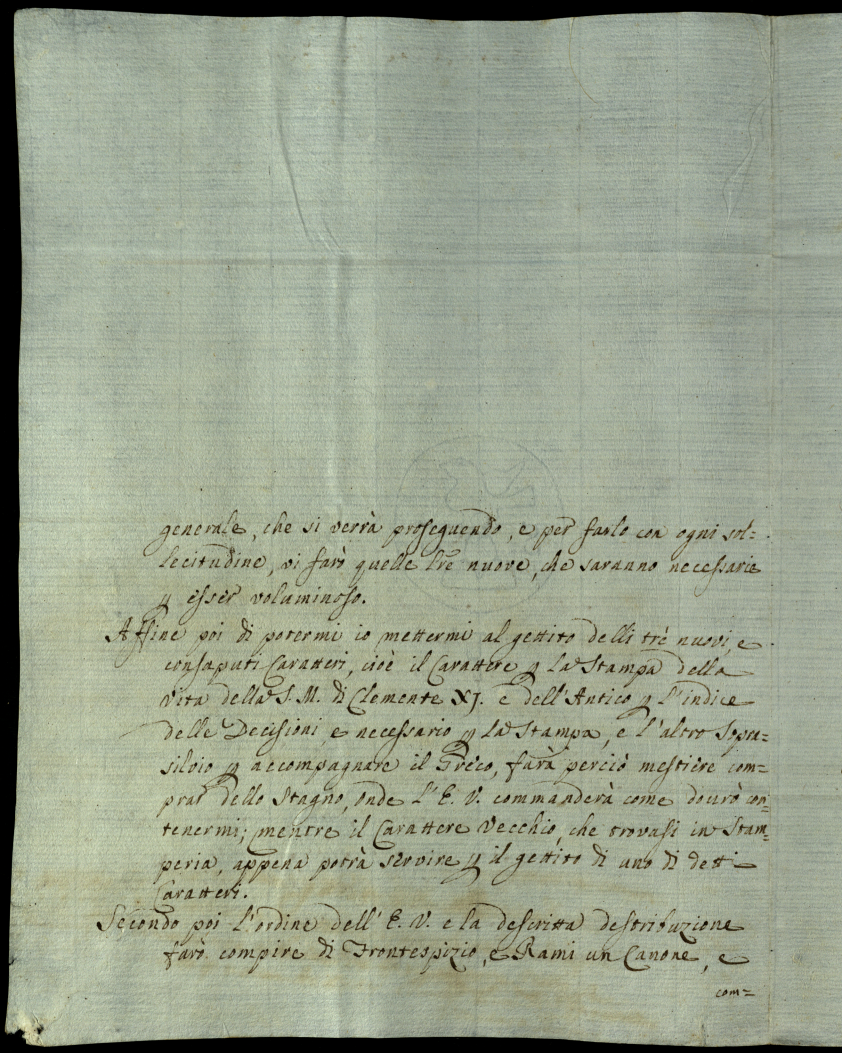 generale, che si verrà proseguendo, e per farlo con ogni sol=
lecitudine, vi farò quelle tre nuove, che saranno necessarie
p esser voluminoso.
Affine poi di potermi io mettermi al gettito delli trè nuovi, e
consaputi Caratteri, cioè il Carattere p la Stampa della
Vita della S. M. di Clemente XJ. e dell'Antico p l'indice
delle Decisioni, e necessario p la Stampa, e l'altro Sopra=
silvio p accompagnare il Greco, farà perciò mestiere com=
prar dello Stagno, onde l'E. V. commanderà come dourò con=
tenermi; mentre il Carattere Vecchio, che trovasi in Stam=
peria, appena potrà servire p il gettito di uno di detti
Caratteri.
Secondo poi l'ordine dell'E. V. e la descritta destribuzione
farò compire di Frontespizio, e Rami un Canone, e
com=